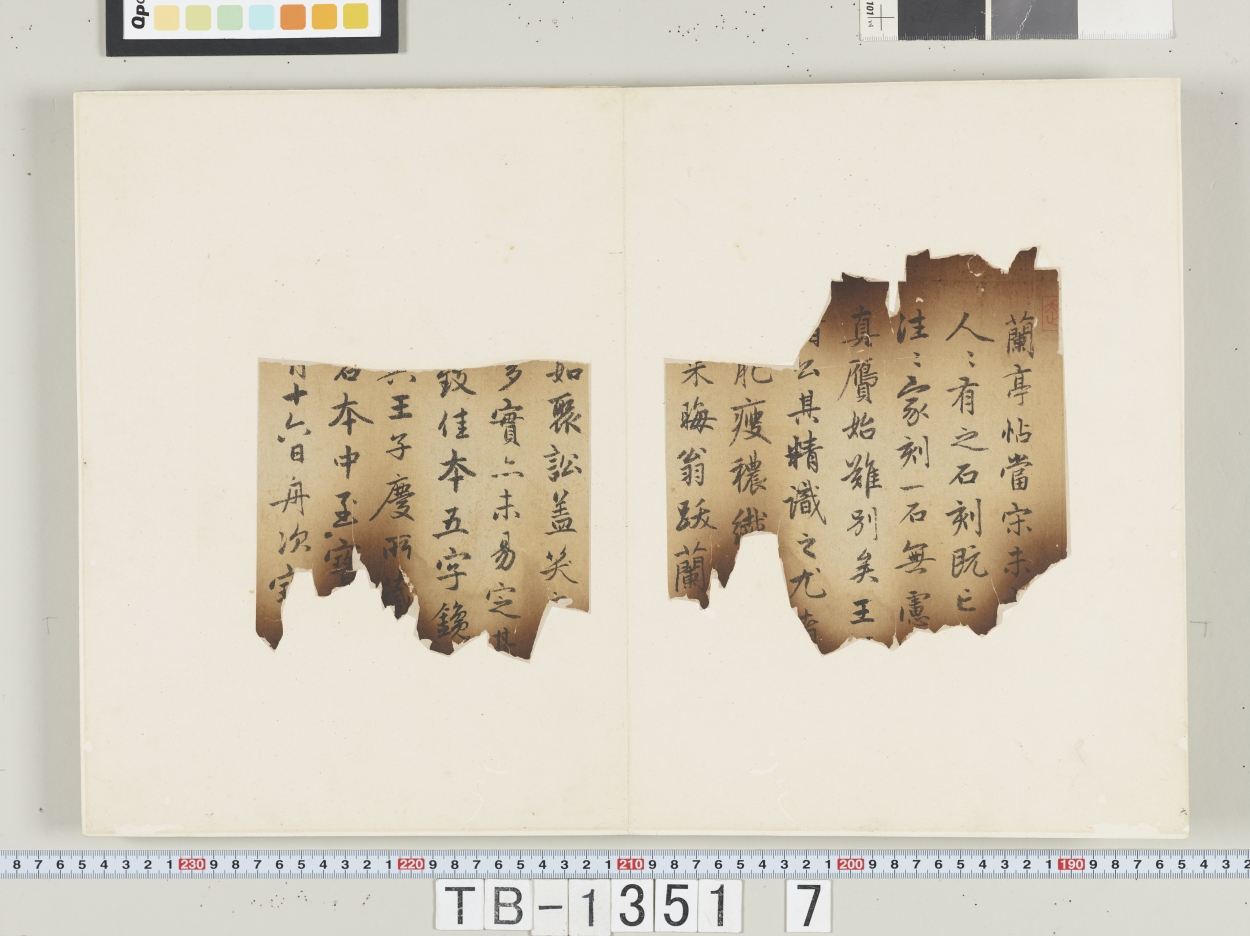 蘭亭帖當宋未
人〻有之石刻既亡
往〻家刻一石無慮
真贗始難別矣王
公其精識之尤者
肥瘦穠纖
朱晦翁跋蘭
如聚訟蓋笑
多實亦未易定其
致佳本五字鑱
與王子慶所藏
石本中至寶
月十六日舟次寶
8 7 6 5 4 3 2 1 230 9 8 7 6 5 4 3 2 1 220 9 8 7 6 5 4 3 2 1 210 9 8 7 6 5 4 3 2 1 200 9 8 7 6 5 4 3 2 1 190 9 8 7 6 5 4 3 2
TB-1351 7